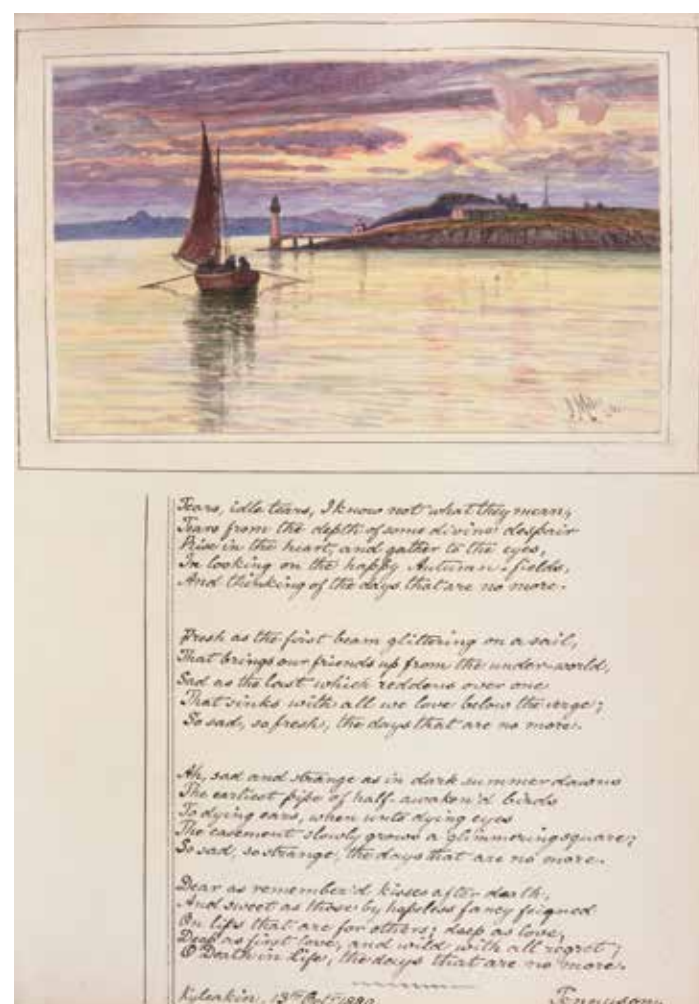 Tears, idle tears, I know not what they mean,
Tears from the depth of some divine despair
Rise in the heart, and gather to the eyes,
In looking on the happy Autumn-fields,
And thinking of the days that are no more.
Fresh as the first beam glittering on a sail,
That brings our friends up from the under-world,
Sad as the last which reddens over one
That sinks with all we love below the verge;
So sad, so fresh, the days that are no more.
Ah, sad and strange as in dark summer dawns
The earliest pipe of half-awaken'd birds
To dying ears, when unto dying eyes
The casement slowly grows a glimmering square;
So sad, so strange, the days that are no more.
Dear as remember'd kisses after death,
And sweet as those by hopeless fancy feigned
On lips that are for others; deep as love,
Deep as first love, and wild with all regret;
O Death in Life, the days that are no more.
Kyleakin, 13th Octr. 1880 Tennyson